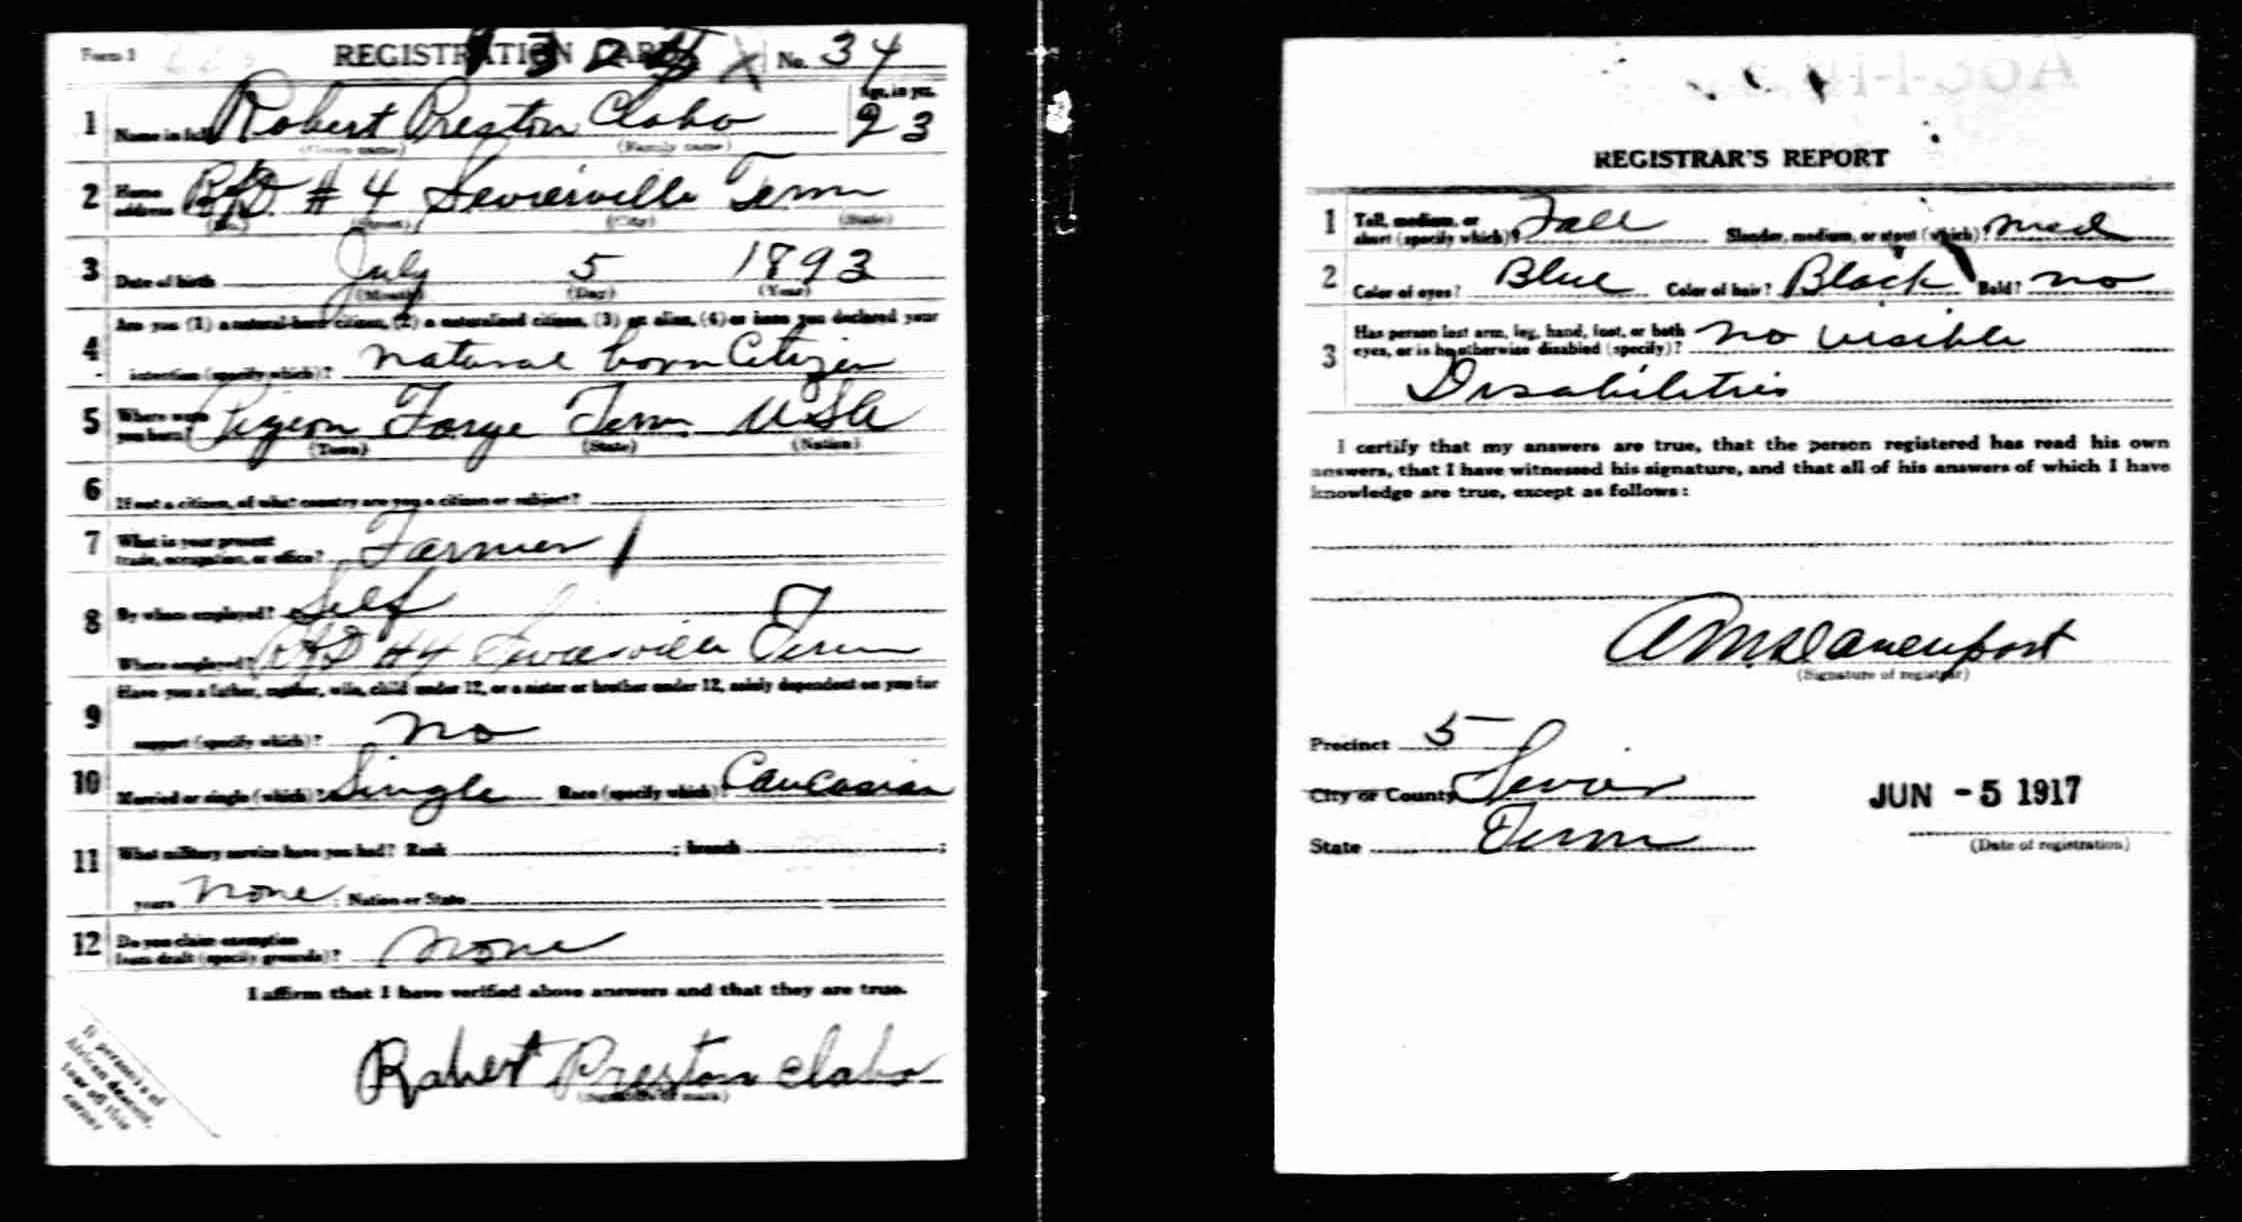 Form 1 REGISTRATION CARD No. 34
1 Name in full Robert Preston Clabo Age, in yrs. 23
(Given name) (Family name)
2 Home address RFD # 4 Sevierville Tenn
(No.) (Street) (City) (State)
3 Date of birth July 5 1893
(Month) (Day) (Year)
4 Are you (1) a natural-born citizen, (2) a naturalized citizen, (3) an alien, (4) or have you declared your
intention (specify which)? natural born Citizen
5 Where were you born? Pigeon Forge Tenn. USA
(Town) (State) (Nation)
6 If not a citizen, of what country are you a citizen or subject?
7 What is your present trade, occupation, or office? Farmer
8 By whom employed? Self
Where employed? RFD #4 Sevierville Tenn
9 Have you a father, mother, wife, child under 12, or a sister or brother under 12, solely dependent on you for
support (specify which)? no
10 Married or single (which)? Single Race (specify which)? Caucasian
11 What military service have you had? Rank ; branch ;
years none ; Nation or State
12 Do you claim exemption from draft (specify grounds)? none
I affirm that I have verified above answers and that they are true.
Robert Preston Clabo
(Signature or mark)
If person is of
African descent,
tear off this
corner
REGISTRAR'S REPORT
1 Tall, medium, or short (specify which)? Tall Slender, medium, or stout (which)? Med
2 Color of eyes? Blue Color of hair? Black Bald? no
3 Has person lost arm, leg, hand, foot, or both
eyes, or is he otherwise disabled (specify)? no visible
Disabilities
I certify that my answers are true, that the person registered has read his own
answers, that I have witnessed his signature, and that all of his answers of which I have
knowledge are true, except as follows:
Davenport
(Signature of registrar)
Precinct 5
City or County Sevier
JUN -5 1917
State Tenn
(Date of registration)